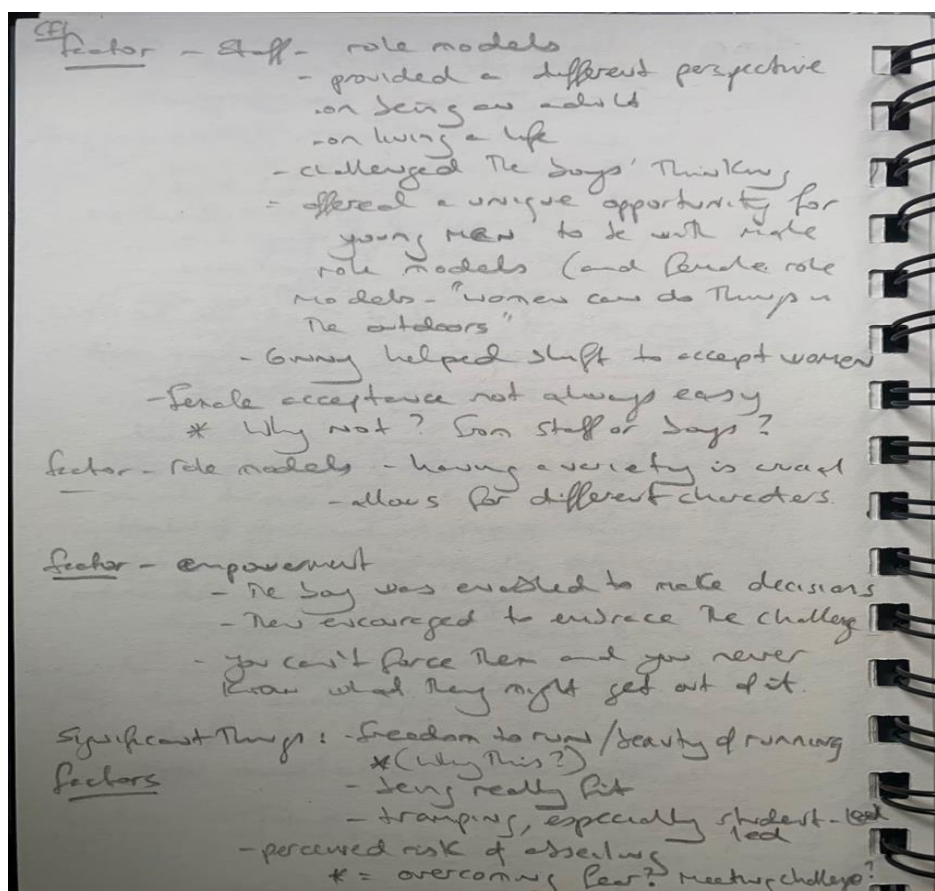 CF1
factor - Staff - role models
- provided a different perspective
- on being an adult
- on living a life
- challenged The boys' Thinking
= offered a unique opportunity for
young men to be with male
role models (and female role
models - "women can do Things in
The outdoors"
- Ginny helped shift to accept women
- female acceptance not always easy
* Why Not? from staff or boys?
factor - role models - having a variety is crucial
- allows for different characters.
factor - empowerment
- The boy was enabled to make decisions
- Then encouraged to embrace The challenge
- you can't force Them and you never
know what They might get out of it.
Significant Things: - freedom to run/beauty of running
factors
*(Why This?)
- being really fit
- tramping, especially student-led
led
- perceived risk of abseiling
* = overcoming fear? Meeting challenge?